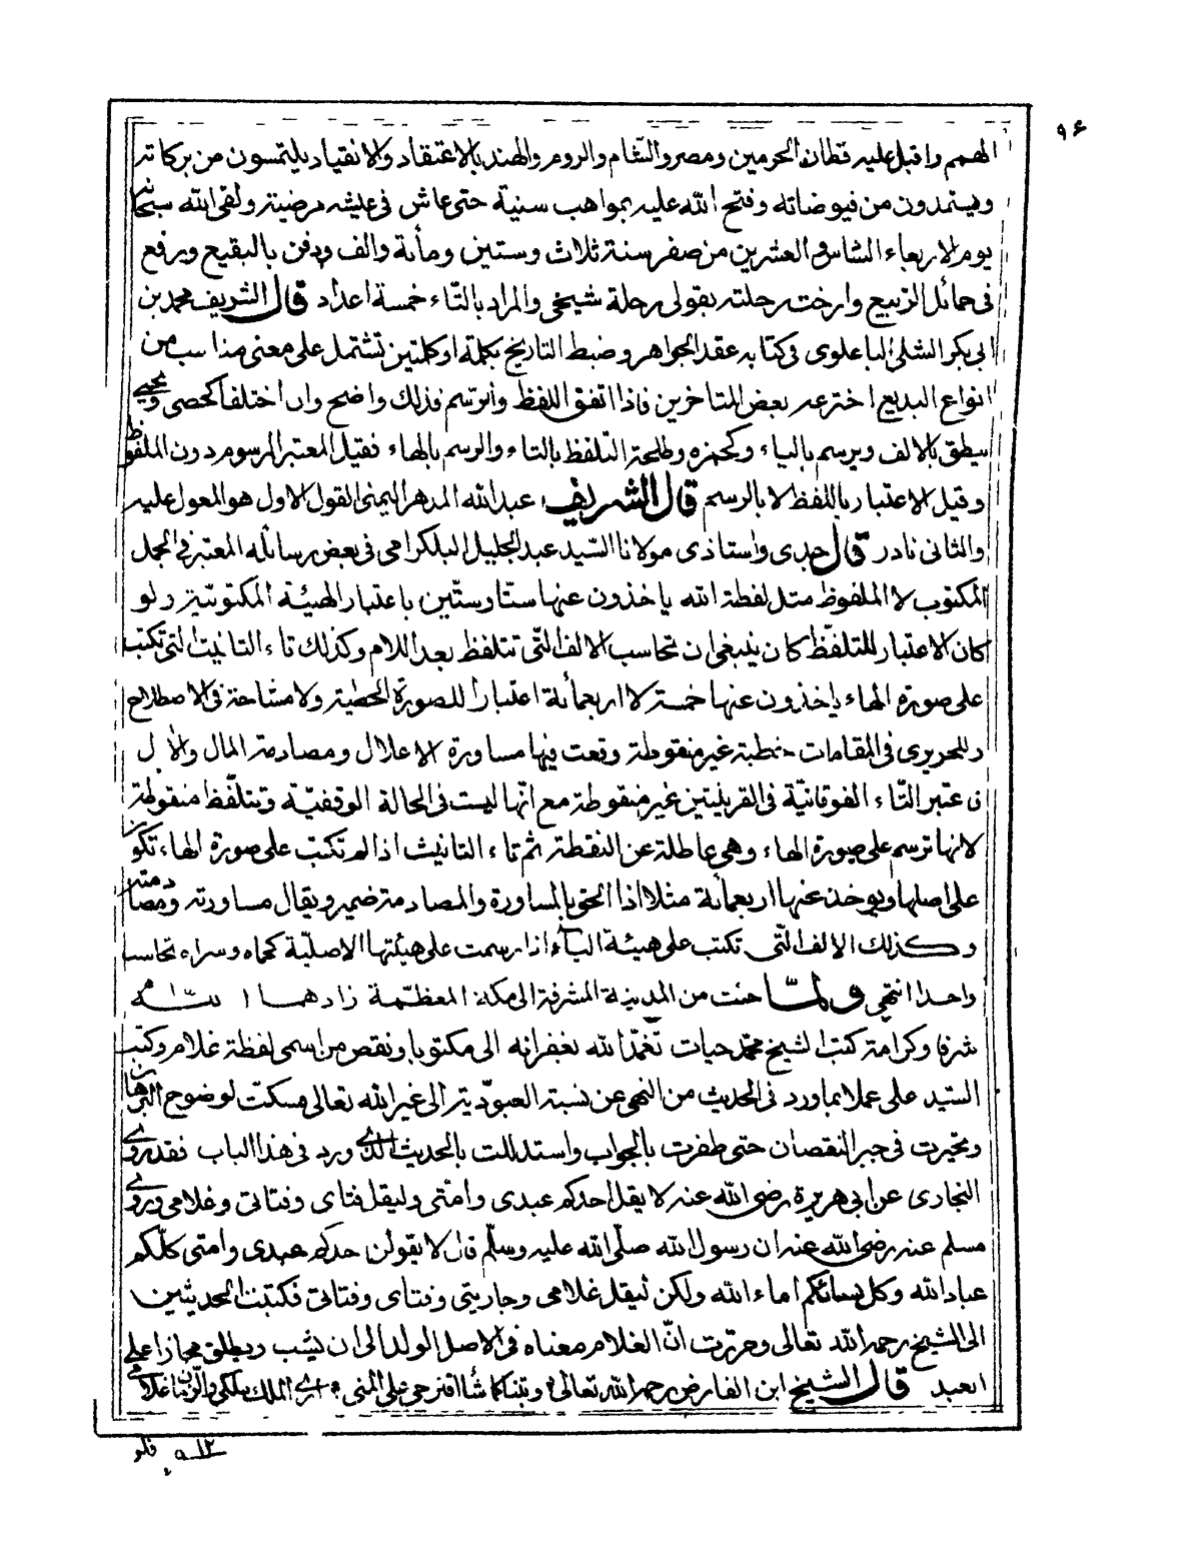 ٩٦
الهمم واقبل عليه قطان الحرمين ومصر والشام والروم والهند بالاعتقاد والانقياد يلتمسون من بركاته
ويستمدون من فيوضاته وفتح الله عليه بمواهب سنية حتى عاش فى عليشه مرضية ولقى الله سبحانه
يوم الاربعاء السادس والعشرين من صفر سنة ثلاث وستين ومأية والف ودفن بالبقيع ورفع
فى حمائل الربيع وارخت رحلته بقولى رحلة شيخى والمراد بالتاء خمسة اعداد قال الشريف محمد بن
ابى بكر الشلى الباعلوى فى كتابه عقد الجواهر وضبط التاريخ بكلمة او كلمتين تشتمل على معنى مناسب من
انواع البديع اخترعه بعض المتاخرين فاذا اتفق اللفظ والرسم فذلك واضح وان اختلفا كحصى ويحيى
ينطق بالالف ويرسم بالياء وكحمزه وطلحة التلفظ بالتاء والرسم بالهاء فقيل المعتبر المرسوم دون الملفوظ
وقيل الاعتبار باللفظ لا بالرسم قال الشريف عبد الله المدهر اليمنى القول الاول هو المعول عليه
والثانى نادر قال جدى واستاذى مولانا السيد عبد الجليل البلكرامى فى بعض رسائله المعتبر فى الجمل
المكتوب لا الملفوظ مثل لفظة الله ياخذون عنها ستا وستين باعتبار الهيئة المكتوبية ولو
كان الاعتبار للتلفظ كان ينبغى ان تحاسب الالف التى تتلفظ بعد اللام وكذلك تاء التانيث التى تكتب
على صورة الهاء ياخذون عنها خمسة لا اربعمائة اعتبارا للصورة الخطية ولا مشاحة فى الاصطلاح
وللحريرى فى المقامات خطبة غير منقوطة وقعت فيها مساورة الاعلال ومصادمة المال والآل
فاعتبر التاء الفوقانية فى القرينتين غير منقوطة مع انها ليست فى الحالة الوقفية وتتلفظ منقوطة
لانها ترسم على صورة الهاء وهى عاطلة عن النقطة ثم تاء التانيث اذا لم تكتب على صورة الهاء تكون
على اصلها ويوخذ عنها اربعمائة مثلا اذا الحق بالمساورة والمصادمة ضمير ويقال مساورته ومصادمته
وكذلك الالف التى تكتب على هيئة الياء اذا رسمت على هيئتها الاصلية كحماه وسراه تحاسب
واحدا انتهى ولما جئت من المدينة المشرفة الى مكة المعظمة زادهما الله
شرفا وكرامة كتب الشيخ محمد حيات تغمد الله بغفرانه الى مكتوبا ونقص من اسمى لفظة غلام وكتب
السيد على عملا بما ورد فى الحديث من النهى عن نسبة العبودية الى غير الله تعالى فسكت لوضوح البرهان
وتحيرت فى جبر النقصان حتى ظفرت بالجواب واستدللت بالحديث الذى ورد فى هذا الباب فقد روى
البخارى عن ابى هريرة رضى الله عنه لا يقل احدكم عبدى وامتى وليقل فتاى وفتاتى وغلامى وروى
مسلم عنه رضى الله عنه ان رسول الله صلى الله عليه وسلم قال لا يقولن احدكم عبدى وامتى كلكم
عباد الله وكل نسائكم اماء الله ولكن ليقل غلامى وجاريتى وفتاى وفتاتى فكتبت الحديثين
الى الشيخ رحمه الله تعالى وحررت ان الغلام معناه فى الاصل الولد الى ان يشب ويطلق مجازا على
العبد قال الشيخ ابن الفارض رحمه الله تعالى وبتنا كما شا اقترحى على المنى ارى الملك ملكى والزمان غلامى
فلو